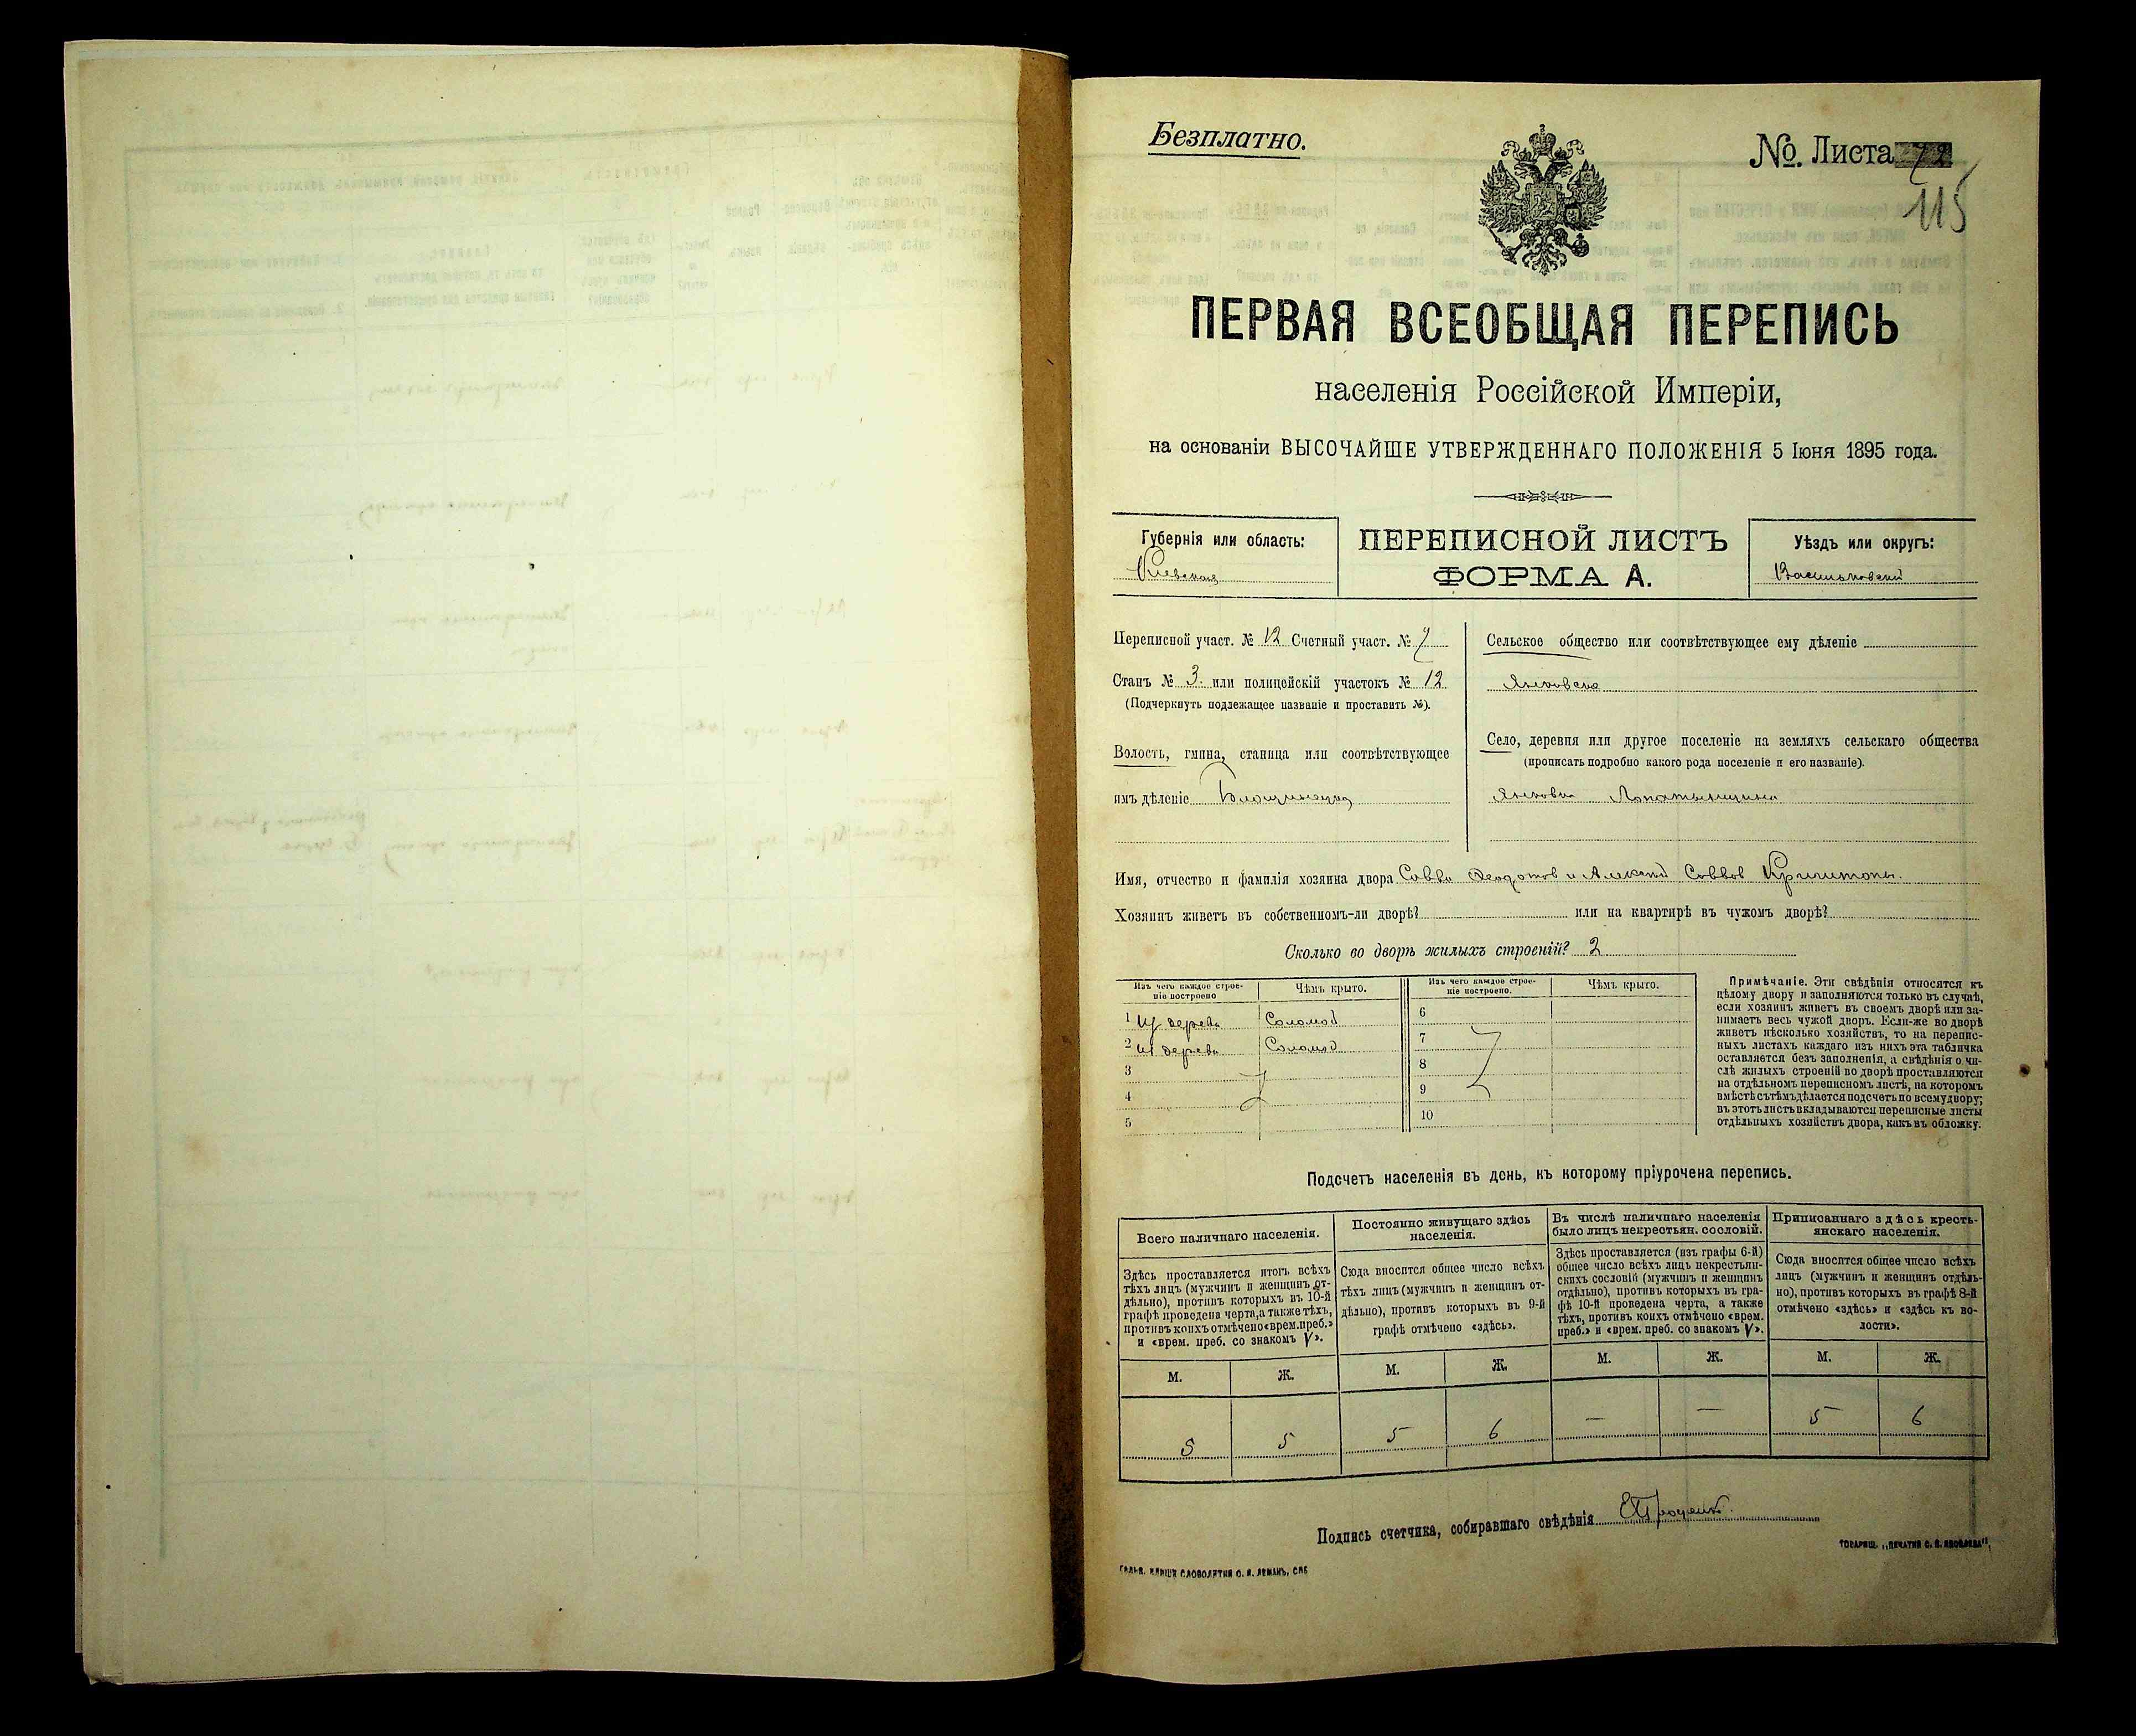 Безплатно.
№. Листа 72
115
ПЕРВАЯ ВСЕОБЩАЯ ПЕРЕПИСЬ
населенія Россійской Имперіи,
на основаніи ВЫСОЧАЙШЕ УТВЕРЖДЕННАГО ПОЛОЖЕНІЯ 5 Іюня 1895 года.
Губернія или область:
Киевская
ПЕРЕПИСНОЙ ЛИСТЪ
ФОРМА А.
Уѣздъ или округъ:
Васильковский
Переписной участ. № 12 Счетный участ. № 7
Станъ № 3. или полицейскій участокъ № 12
(Подчеркнуть подлежащее названіе и проставить №).
Волость, гмина, станица или соотвѣтствующее
имъ дѣленіе
Сельское общество или соотвѣтствующее ему дѣленіе
Янковско
Село, деревня или другое поселеніе на земляхъ сельскаго общества
(прописать подробно какого рода поселеніе и его названіе).
Янковка
Имя, отчество и фамилія хозяина двора Савва Федотов и Алексей Саввов
Хозяинъ живетъ въ собственномъ-ли дворѣ? или на квартирѣ въ чужомъ дворѣ?
Сколько во дворѣ жилыхъ строеній? 2
Изъ чего каждое строе-
ніе построено
Чѣмъ крыто.
Изъ чего каждое строе-
ніе построено.
Чѣмъ крыто.
1 Из дерева Соломой
2 из дерева Соломой
3
4
5
6
7
8
9
10
Примѣчаніе. Эти свѣдѣнія относятся къ
цѣлому двору и заполняются только въ случаѣ,
если хозяинъ живетъ въ своемъ дворѣ или за-
нимаетъ весь чужой дворъ. Если-же во дворѣ
живетъ нѣсколько хозяйствъ, то на перепис-
ныхъ листахъ каждаго изъ нихъ эта табличка
оставляется безъ заполненія, а свѣдѣнія о чи-
слѣ жилыхъ строеній во дворѣ проставляются
на отдѣльномъ переписномъ листѣ, на которомъ
вмѣстѣ съ тѣмъ дѣлается подсчетъ по всему двору;
въ этотъ листъ вкладываются переписные листы
отдѣльныхъ хозяйствъ двора, какъ въ обложку.
Подсчетъ населенія въ день, къ которому пріурочена перепись.
Всего наличнаго населенія.
Здѣсь проставляется итогъ всѣхъ
тѣхъ лицъ (мужчинъ и женщинъ от-
дѣльно), противъ которыхъ въ 10-й
графѣ проведена черта, а также тѣхъ,
противъ коихъ отмѣчено «врем. преб.»
и «врем. преб. со знакомъ V».
Постоянно живущаго здѣсь
населенія.
Сюда вносится общее число всѣхъ
тѣхъ лицъ (мужчинъ и женщинъ от-
дѣльно), противъ которыхъ въ 9-й
графѣ отмѣчено «здѣсь».
Въ числѣ наличнаго населенія
было лицъ некрестьян. сословій.
Здѣсь проставляется (изъ графы 6-й)
общее число всѣхъ лицъ некрестьян-
скихъ сословій (мужчинъ и женщинъ
отдѣльно), противъ которыхъ въ гра-
фѣ 10-й проведена черта, а также
тѣхъ, противъ коихъ отмѣчено «врем.
преб.» и «врем. преб. со знакомъ V».
Приписаннаго здѣсь кресть-
янскаго населенія.
Сюда вносится общее число всѣхъ
лицъ (мужчинъ и женщинъ отдѣль-
но), противъ которыхъ въ графѣ 8-й
отмѣчено «здѣсь» и «здѣсь къ во-
лости».
М. Ж. М. Ж. М. Ж. М. Ж.
5 5 5 6 — — 5 6
Подпись счетчика, собиравшаго свѣдѣнія
ТОВАРИЩ. „ПЕЧАТНЯ С. П. ЯКОВЛЕВА“,
ГАЛЬВ. КЛИШЕ СЛОВОЛИТНИ О. И. ЛЕМАНЪ, СПБ